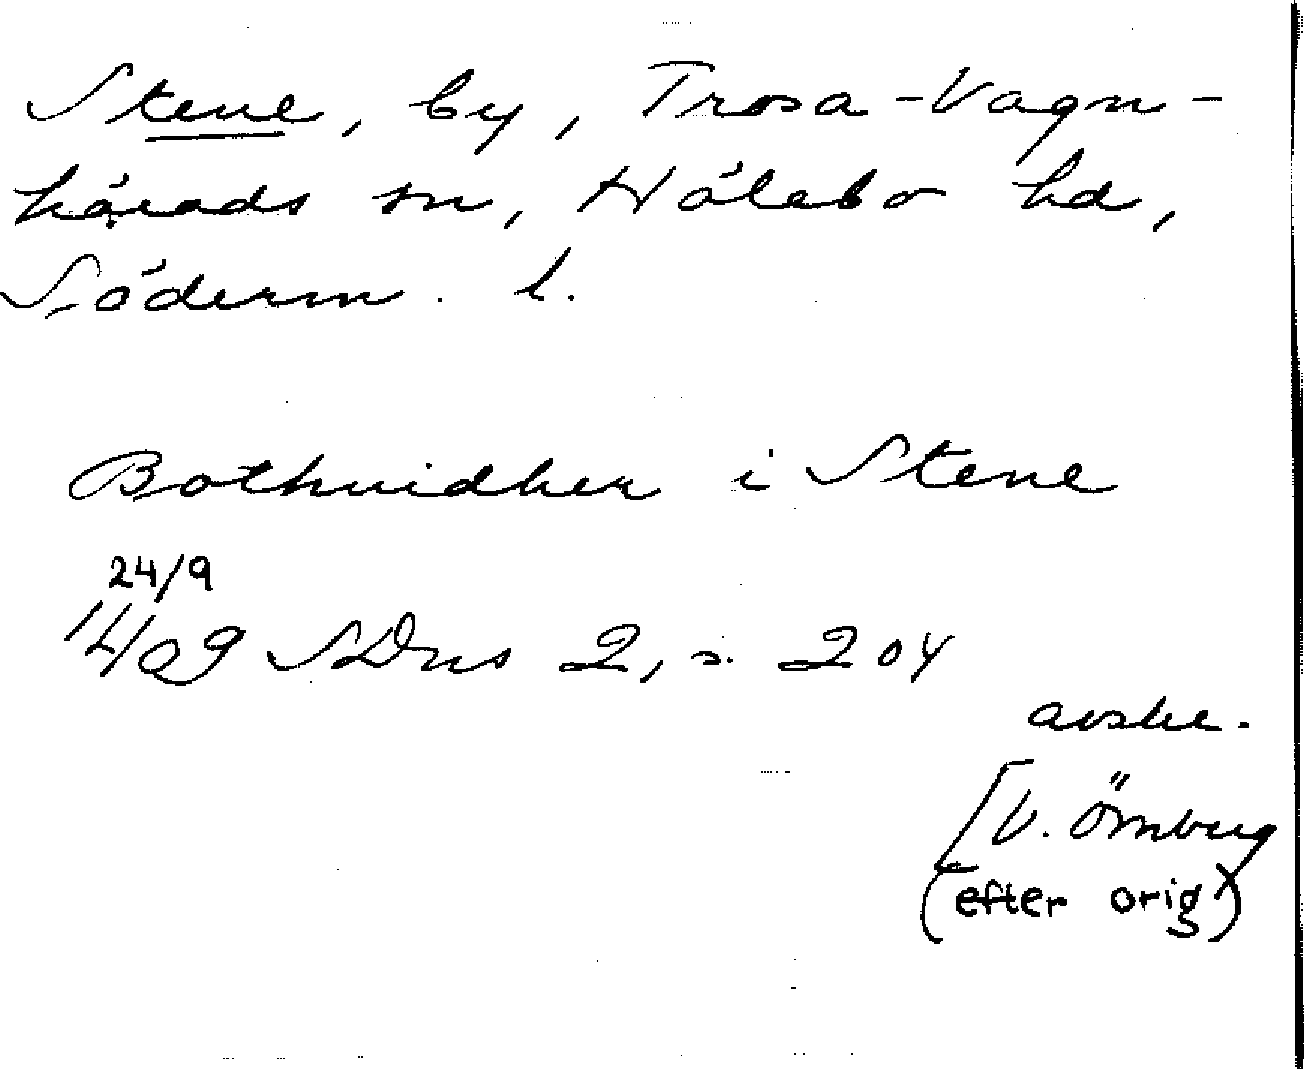 Stene, by, Trosa-Vagn-
härads sn, Hölebo hd,
Söderm. l.
Bothuidher i Stene
24/9
1409 SDns 2, s. 204
avskr.
[V. Örnberg
(efter orig)